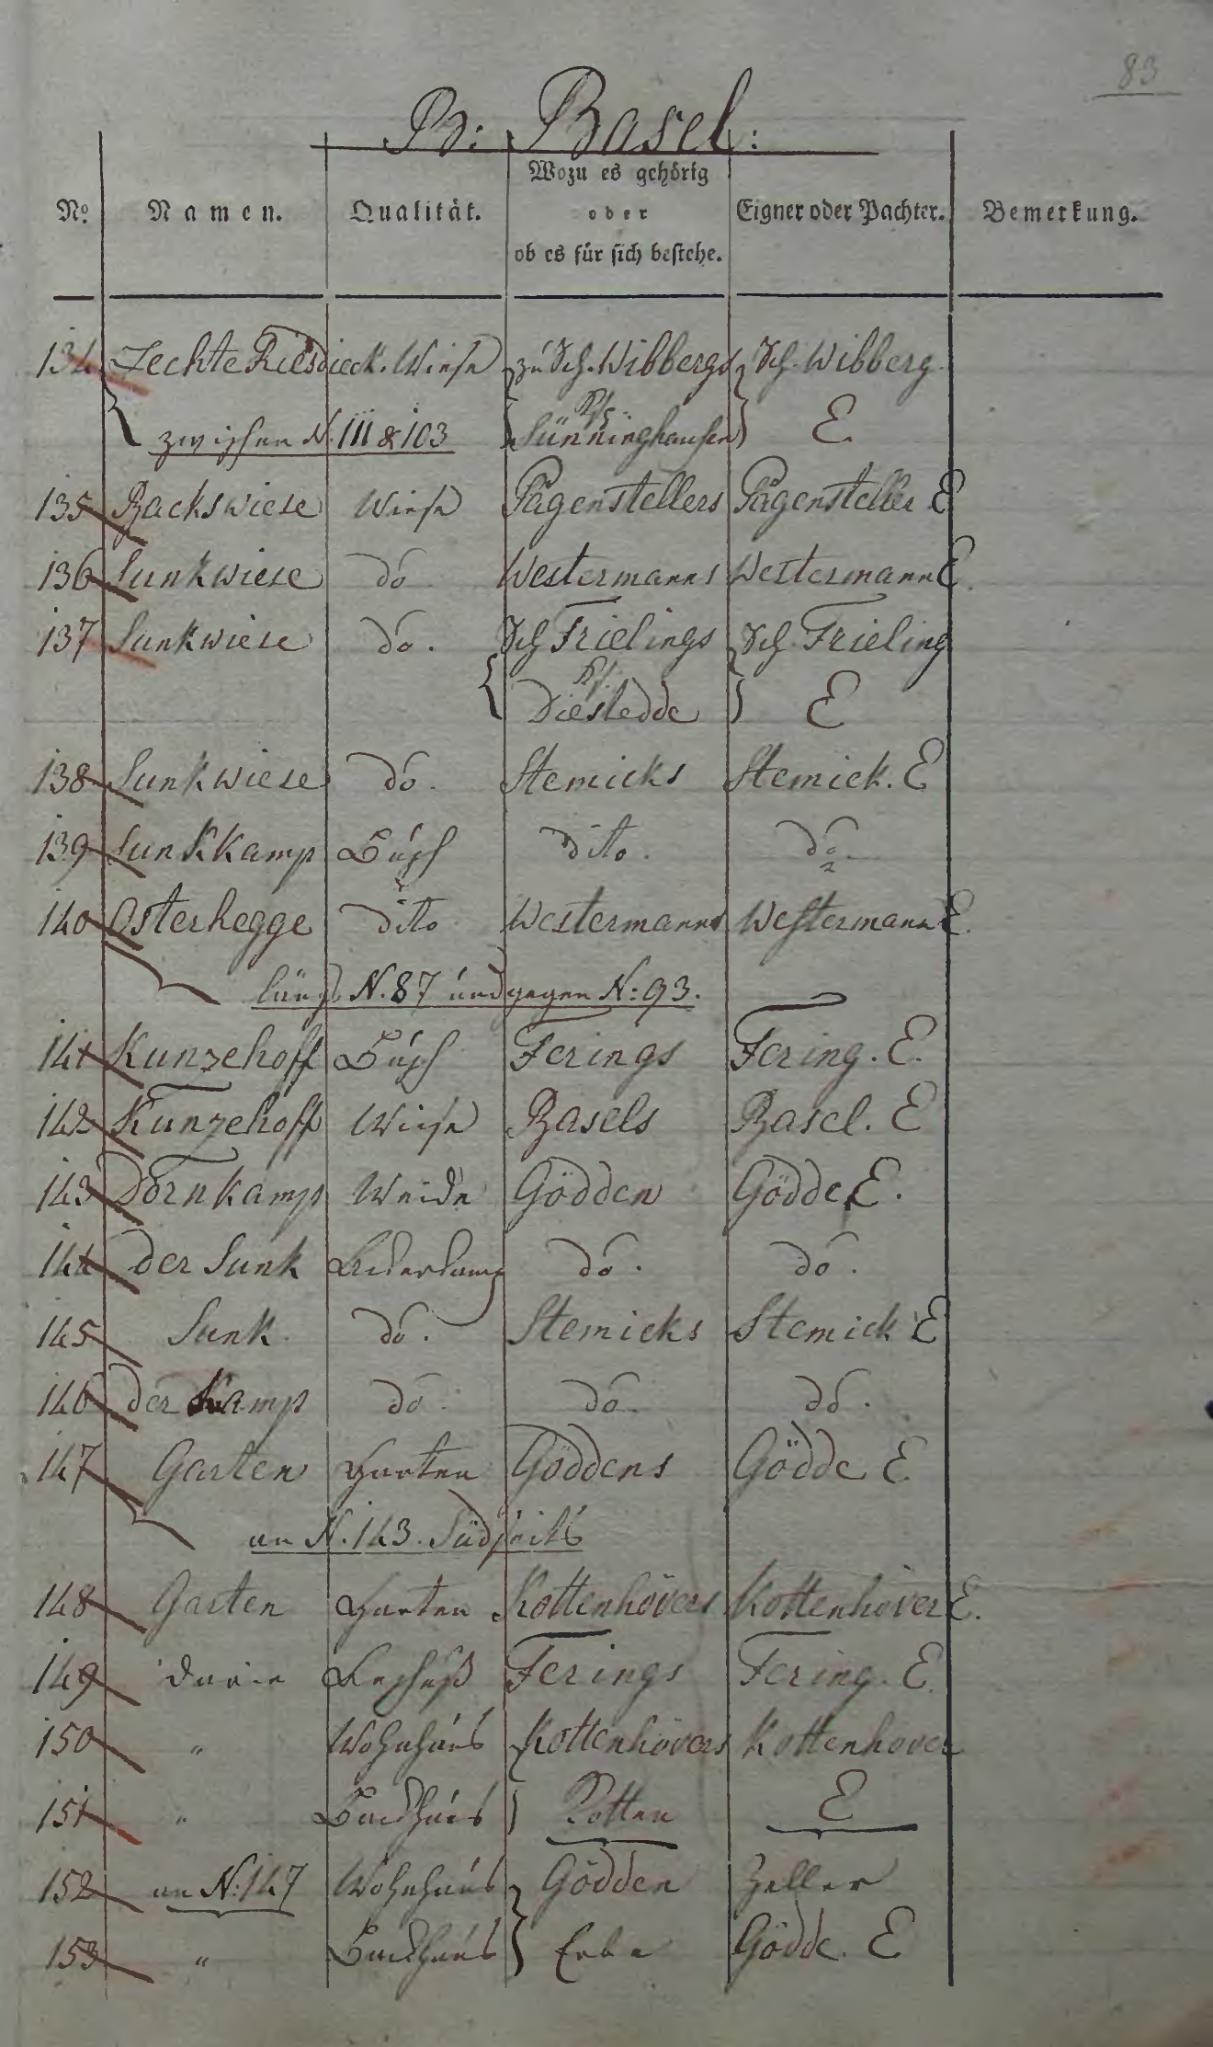 83
B: Basel:
No. Namen. Qualität. Wozu es gehörig oder ob es für sich bestehe. Eigner oder Pachter. Bemerkung.
134 Zechte Riesdieck. Wiese zu Sch. Wibbergs Sch. Wibberg.
zwischen N. 111 & 103 Ks. Sünninghausen E
135 Backswiese Wiese Pagenstellers Pagensteller E
136 Sunkwiese do Westermanns Westermann E.
137 Sunkwiese do. Sch Frielings Sch. Frieling
Ks. Diestedde E
138 Sunkwiese do. Stemicks Stemick. E
139 Sunkkamp Busch dito. do.
140 Osterhegge dito Westermanns Westermann E.
längs N. 87 und gegen N: 93.
141 Kunzehoff Busch Ferings Fering. E.
142 Kunzehoff Wiese Basels Basel. E
143 Dornkamp Weide Gödden Gödde E.
144 Der Sunk do. do.
145 Sunk do. Stemicks Stemick E
146 der Kamp do. do. do.
147 Garten Garten Göddens Gödde E.
an N. 143. Südseits
148 Garten Garten Kottenhövers Kottenhöver E.
149 Ferings Fering. E.
150 " Wohnhaus Kottenhövers Kottenhöver
151 " Backhaus Kotten E
152 an N: 147 Wohnhaus Gödden Zeller
153 " Backhaus Erbe Gödde. E